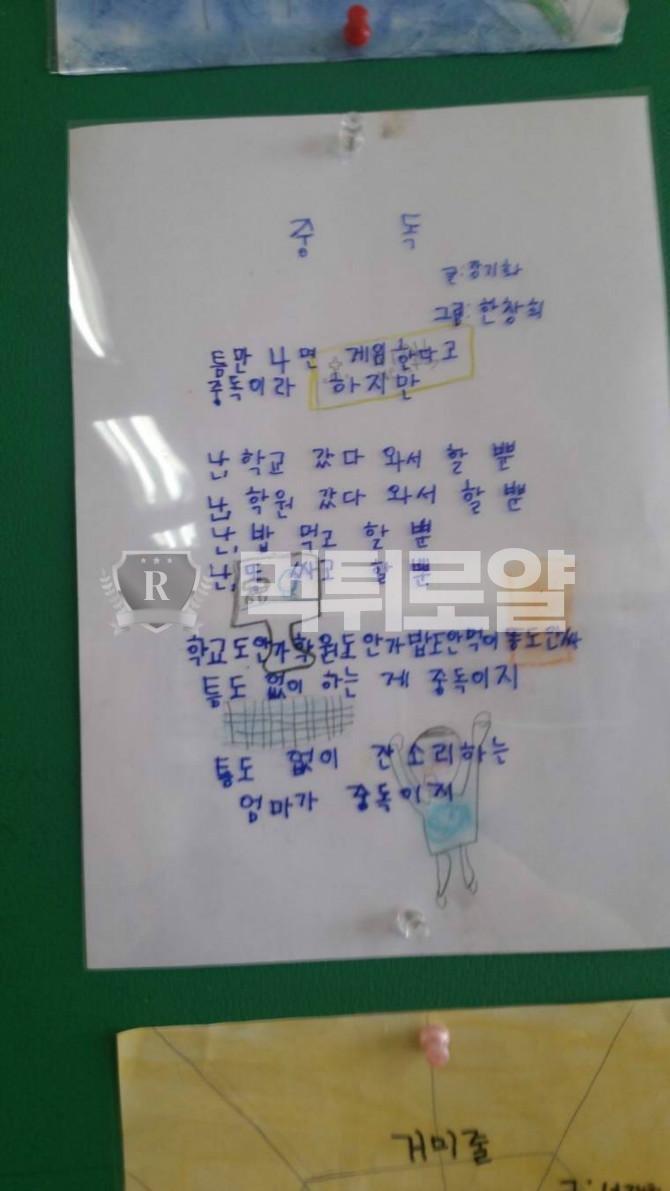 중 독
글:장기화
그림:한창희
틈만 나면 게임한다고
중독이라 하지만
난, 학교 갔다 와서 할 뿐
난, 학원 갔다 와서 할 뿐
난, 밥 먹고 할 뿐
난, 똥 싸고 할 뿐
학교도안가학원도안가밥도안먹이똥도안싸
틈도 없이 하는 게 중독이지
틈도 없이 잔소리하는
엄마가 중독이지
R
먹튀로얄
거미줄